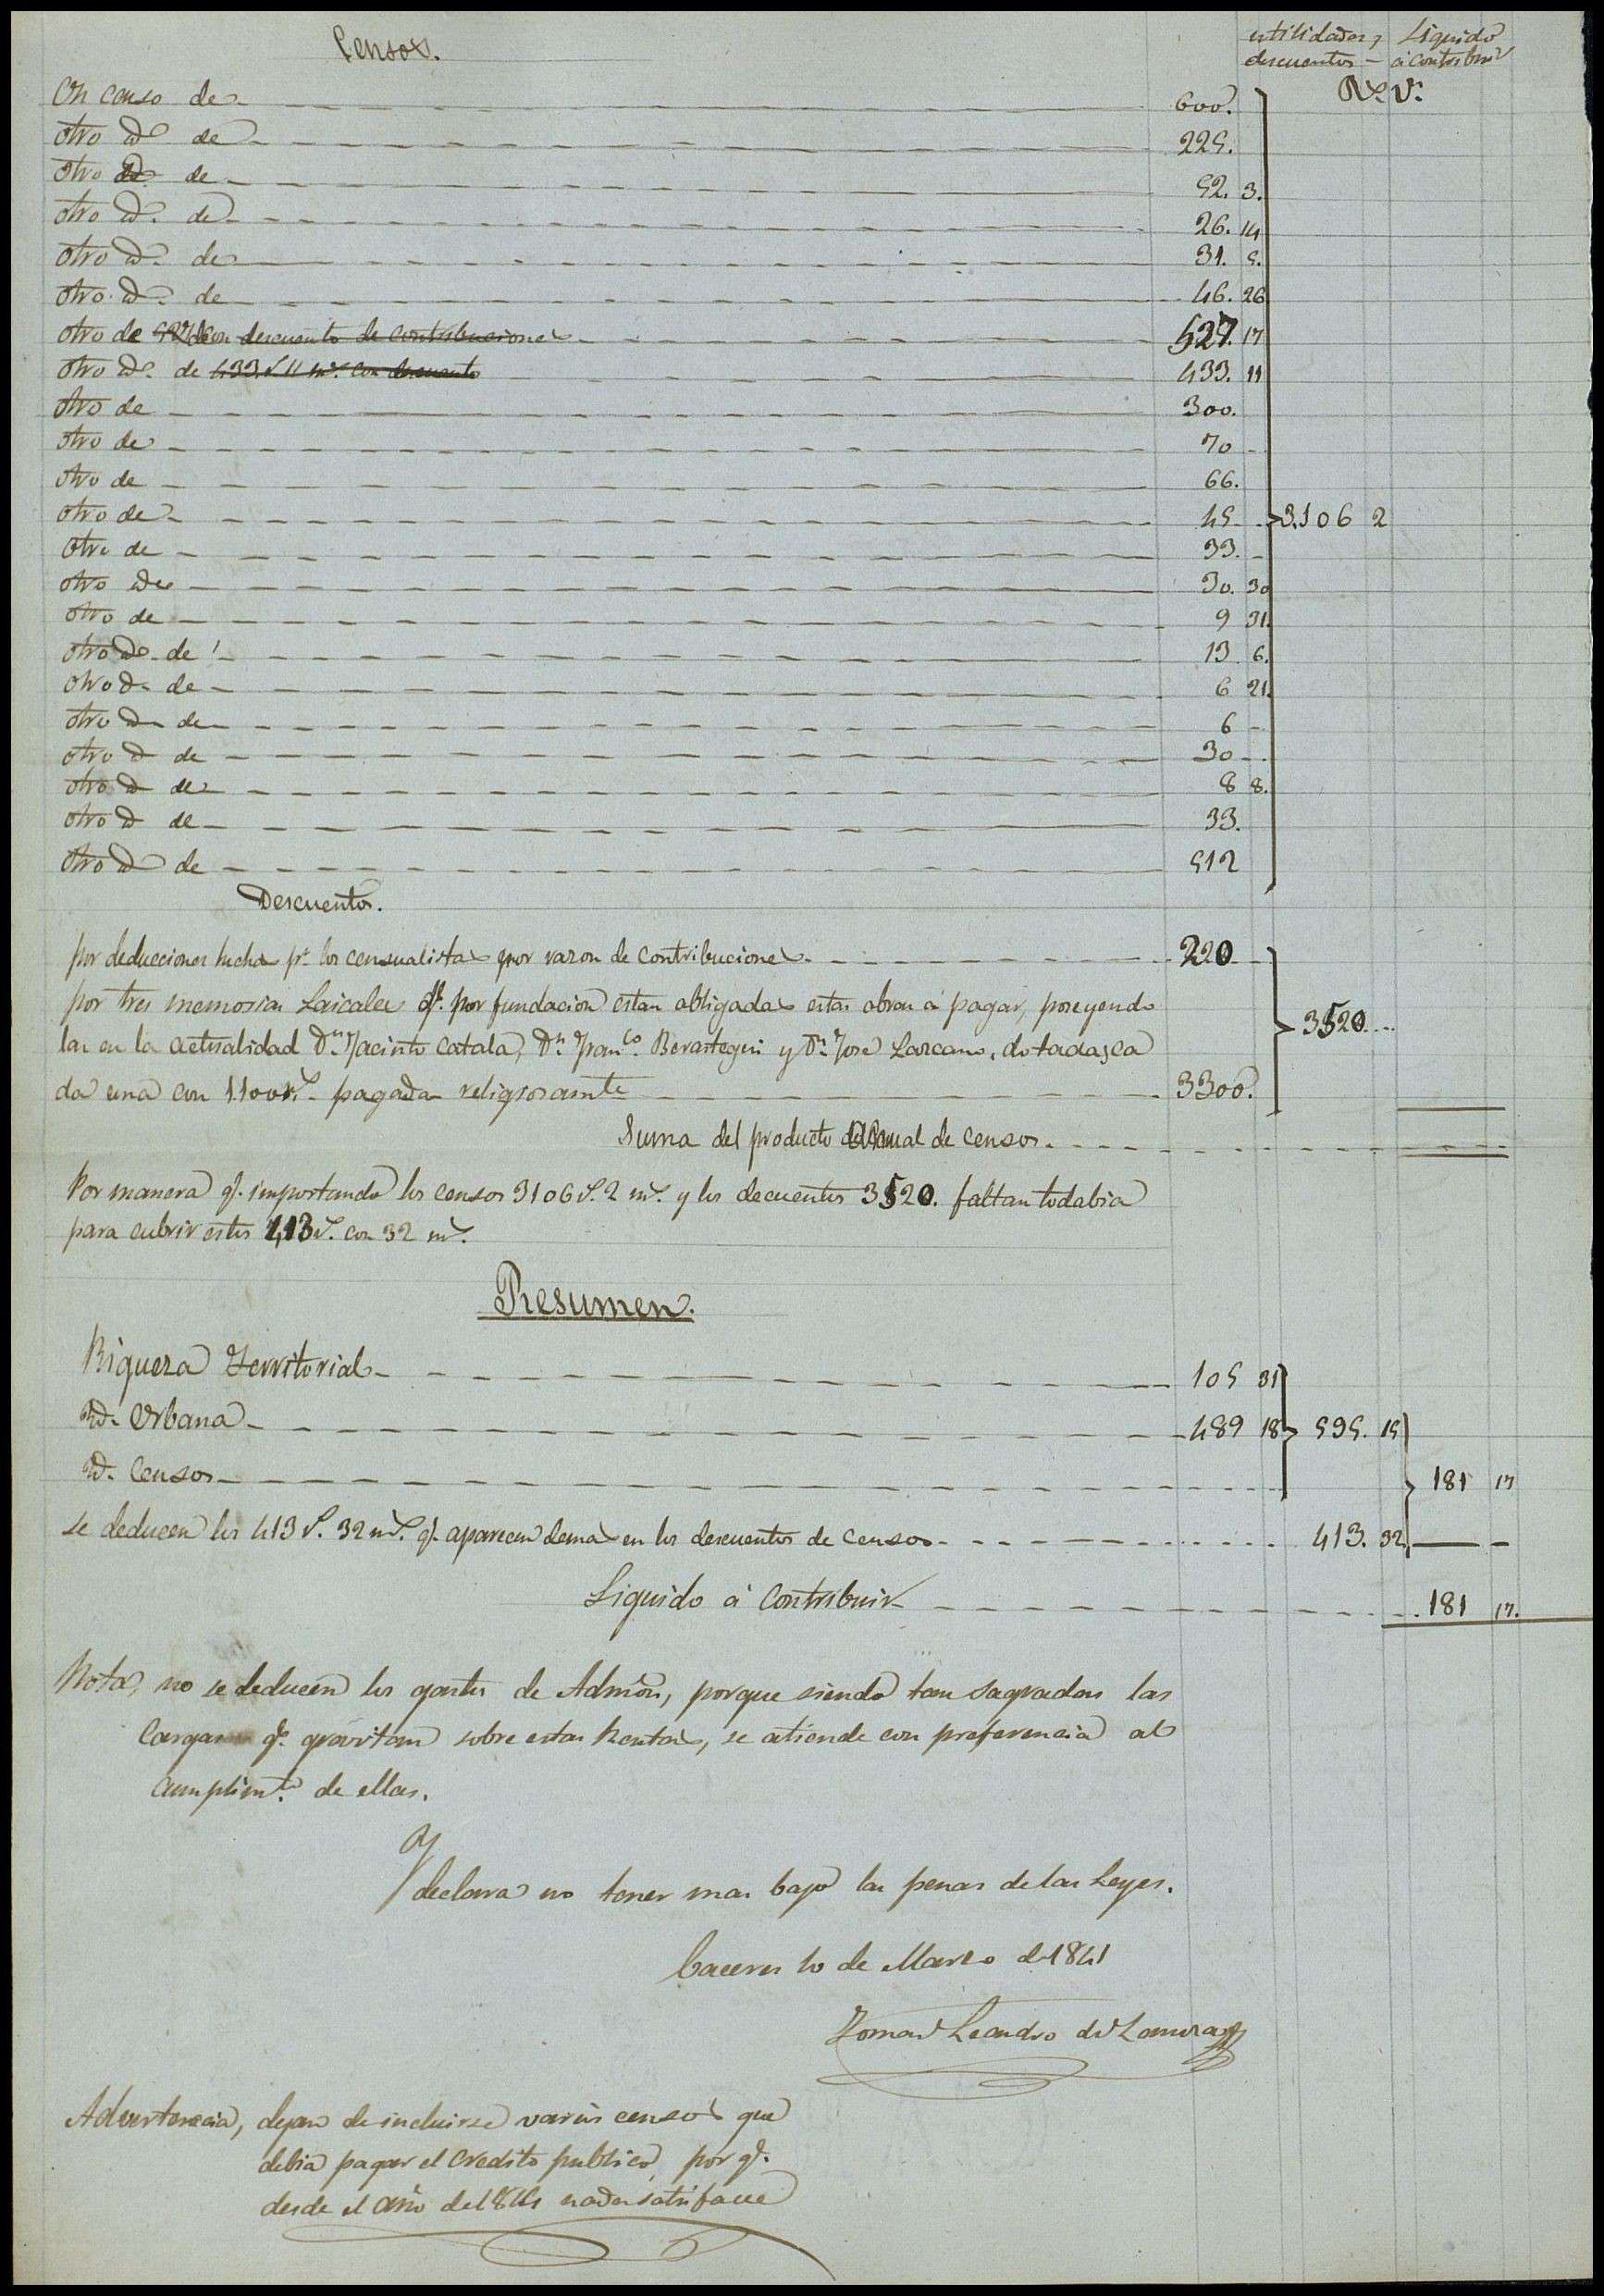 Censos.
utilidades y descuentos - Liquido á contribuir
Rs. Vn.
Un censo de 600.
otro id de 225.
otro id de 52. 3.
otro id. de 26. 14
otro id. de 31. 5.
otro id. de 46. 26
otro de con descuento de contribuciones 527. 17
otro id. de 433 rs 11 mrs. con descuento 433. 11
otro de 300.
otro de 70 -
otro de 66.
otro de 45 - 3.106 2
otro de 33. -
otro de 30. 30
otro de 9 31.
otro id. de 13 6.
otro id. de 6 21.
otro id. de 6 -
otro id de 30 -
otro id de 8 8.
otro id de 33.
otro id de 512
Descuentos.
por deducciones hechas pr. los censualistas por razon de contribuciones 220
por tres memorias Laicales q. por fundacion estan obligadas estas obras á pagar, poseyendo
las en la actualidad Dn. Jacinto Catala, Dn. Franco. Berastegui y Dn. Jose Lazcano, dotadas ca 3520
da una con 1.100 rs. pagadas religiosamte 3300.
Suma del producto anual de censos.
Por manera q. importando los censos 3106 rs. 2 ms. y los decuentos 3520. faltan todabia
para cubrir estos 413 rs. con 32 ms.
Resumen.
Riqueza Territorial 105 31
Id. Urbana 489 18 595. 15
Id. Censos 181 17
se deducen los 413 rs. 32 ms. q. aparecen demas en los descuentos de censos 413. 32
Liquido á Contribuir 181 17.
Nota, no se deducen los gastos de Admon, porque siendo tan sagradas las
Cargas q. gravitan sobre estas Rentas, se atiende con preferencia al
cumplimto. de ellas.
Y
declara no tener mas bajo las penas de las Leyes.
Caceres 10 de Marzo de 1841
Tomas Leandro de
Advertencia, dejan de incluirse varios censos que
debia pagar el credito publico, por q.
desde el año de nada satisface